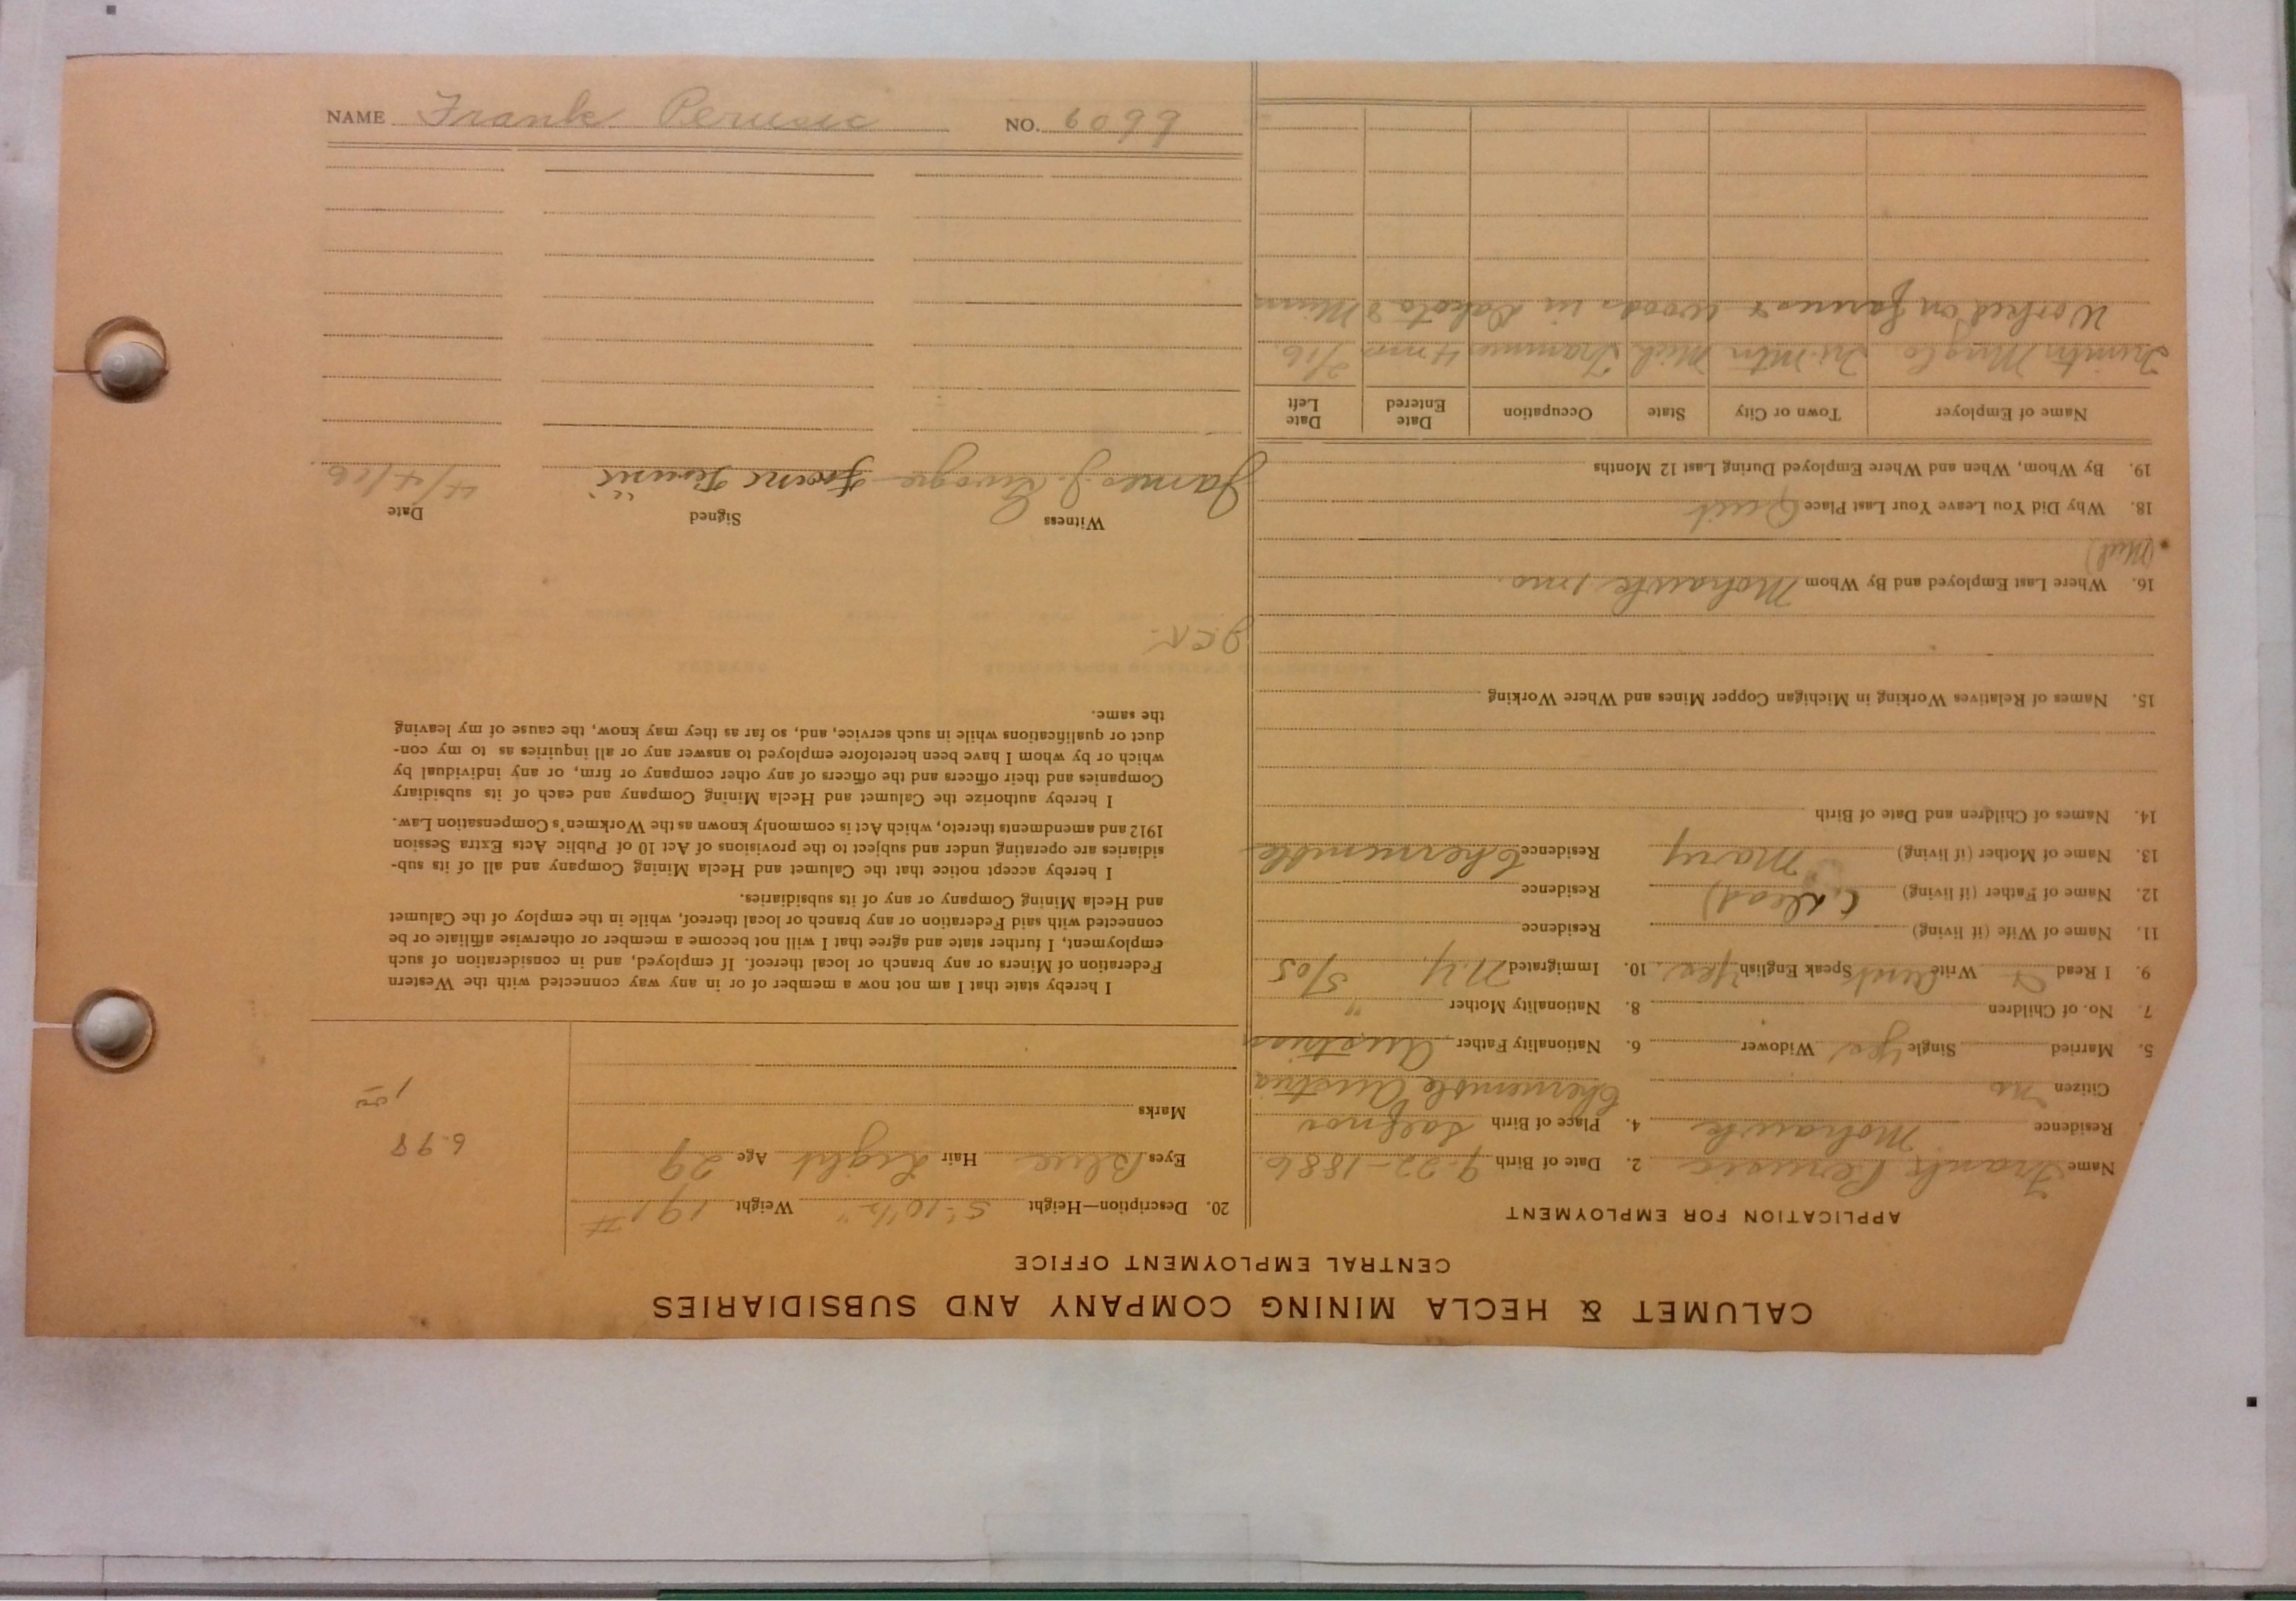 NAME Frank Perusic NO. 6099
CALUMET & HECLA MINING COMPANY AND SUBSIDIARIES
CENTRAL EMPLOYMENT OFFICE
APPLICATION FOR EMPLOYMENT
Name Frank Perusic 2. Date of Birth 9-22-1886
Residence Mohawk 4. Place of Birth
Citizen no Chernemble Austria
5. Married Single Yes Widower 6. Nationality Father Austrian
7. No. of Children 8. Nationality Mother "
9. I Read & Write Aust Speak English Yes 10. Immigrated N.Y. 5/05
11. Name of Wife (if living) Residence
12. Name of Father (if living) (Dead) Residence
13. Name of Mother (if living) Mary Residence Chernemble
14. Names of Children and Date of Birth
15. Names of Relatives Working in Michigan Copper Mines and Where Working
16. Where Last Employed and By Whom Mohawk 1 mo.
18. Why Did You Leave Your Last Place Quit
19. By Whom, When and Where Employed During Last 12 Months
Name of Employer Town or City State Occupation Date Entered Date Left
Trimtn Mng Co Tri-Mtn Mich Trammer 4 mos 2/16
Worked on farms & woods in Dakota & Minn
20. Description—Height 5'-10 1/2" Weight 191 #
Eyes Blue Hair Light Age 29
Marks
6.98
I hereby state that I am not now a member of or in any way connected with the Western
Federation of Miners or any branch or local thereof. If employed, and in consideration of such
employment, I further state and agree that I will not become a member or otherwise affiliate or be
connected with said Federation or any branch or local thereof, while in the employ of the Calumet
and Hecla Mining Company or any of its subsidiaries.
I hereby accept notice that the Calumet and Hecla Mining Company and all of its sub-
sidiaries are operating under and subject to the provisions of Act 10 of Public Acts Extra Session
1912 and amendments thereto, which Act is commonly known as the Workmen's Compensation Law.
I hereby authorize the Calumet and Hecla Mining Company and each of its subsidiary
Companies and their officers and the officers of any other company or firm, or any individual by
which or by whom I have been heretofore employed to answer any or all inquiries as to my con-
duct or qualifications while in such service, and, so far as they may know, the cause of my leaving
the same.
Witness Signed Date
James J.